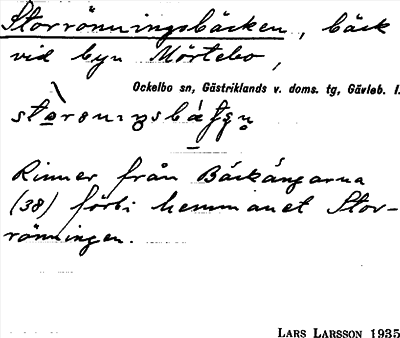 Storrönningsbäcken, bäck
vid byn Mörtebo,
Ockelbo sn, Gästriklands v. doms. tg, Gävleb. l.
Rinner från Bäckängarna
(38) förbi hemmanet Stor-
rönningen.
LARS LARSSON 1935